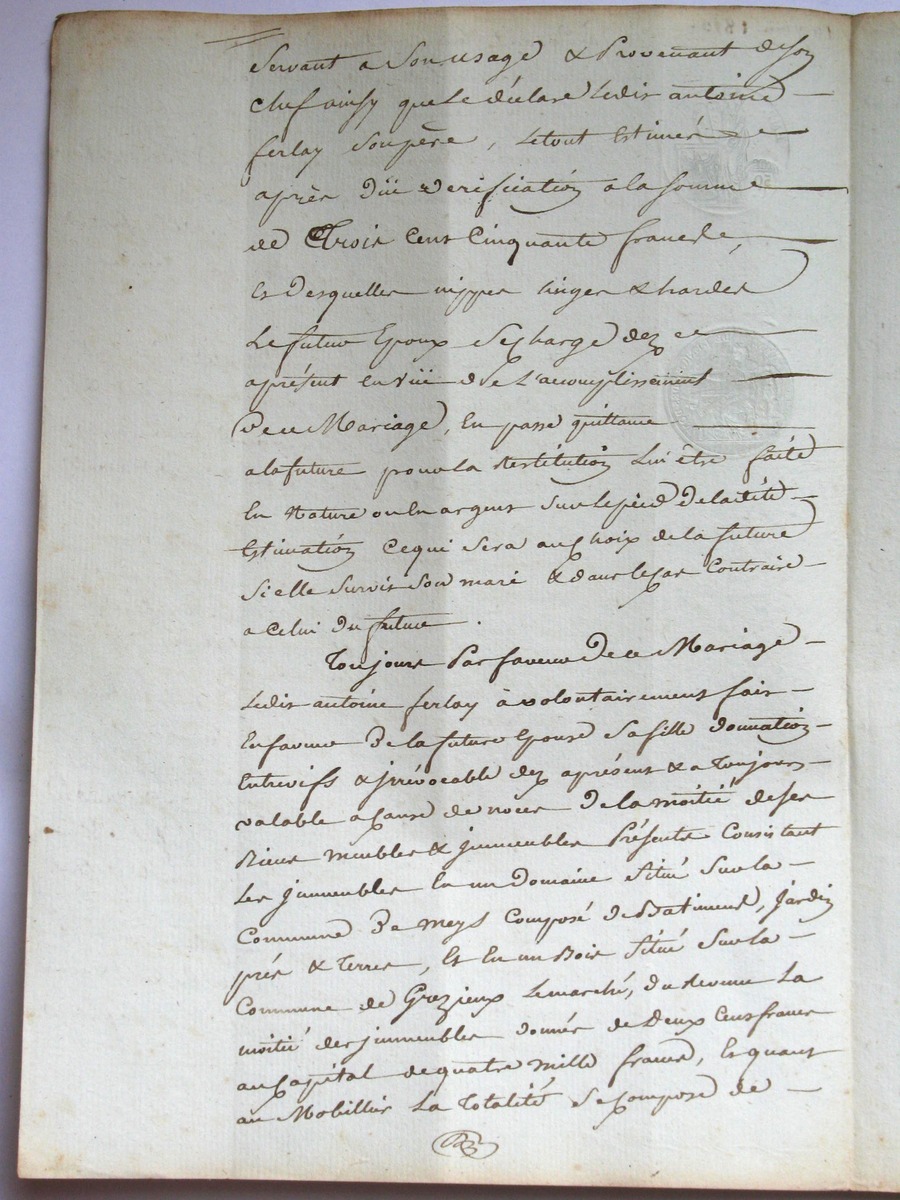 Servant a Son usage & Provenant de Son
Chef ainsy que Le déclare Ledit antoine
ferlay Son père, Letout Estimés
après Düe verification a la Somme
de Trois Cent Cinquante francs,
Et Desquelles nippes linges & hardes
Le futur Epoux Se charge dez
aprésent en vüe de L'accomplissement
De ce Mariage, En passe quittance
a la future pour La Restitution Lui être faite
En Nature ou En argent Sur le pied De la dite
Estimation Ce qui Sera au Choix de la future
Si elle Survit Son mari & dans le Cas Contraire
a Celui Du futur.
Toujours Par faveur De ce Mariage
Ledit antoine ferlay à volontairement fait
En faveur De la future Epouse Sa fille donnation
Entrevifs & jrrévocable dez aprésent & a Toujours
valable a Cause de noces De la moitié de Ses
Biens meubles & jmmeubles Présents Consistant
Les jmmeubles En un Domaine Situé Sur la
Commune De meys Composé De Batiments, Jardin
prés & Terres, Et En un Bois Situé Sur la
Commune de Grezieux Le marché, du Revenu La
moitié des jmmeubles donnés de Deux Cent francs
au Capital de quatre mille francs, Et quant
au Mobillier La Totalité Se Compose de